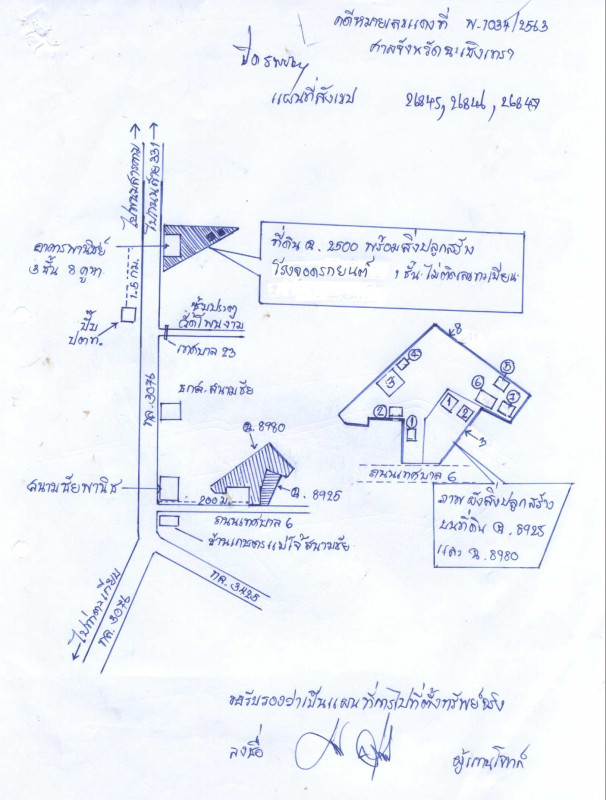 คดีหมายเลขแดงที่ พ-1034/2563
ศาลจังหวัดฉะเชิงเทรา
แผนที่สังเขป
ไปถนนสาย 331
อาคารพาณิชย์
3 ชั้น 8 คูหา
1.5 กม.
ที่ดิน ฉ. 2500 พร้อมสิ่งปลูกสร้าง
โรงจอดรถยนต์ 1 ชั้น ไม่ติดเลขทะเบียน
ปั๊ม
ปตท.
ซุ้มประตู
วัดโพนงาม
เทศบาล 23
ทล. 3076
ธกส. สนามชัย
ฉ. 8980
สนามชัยพานิช
200 ม.
ฉ. 8925
ถนนเทศบาล 6
ร้านเกษตรแม่โจ้สนามชัย
ทล. 3425
ไปท่าตะเกียบ
ทล. 3076
8
4
5
3
6
7
2
1
1
2
3
ถนนเทศบาล 6
ภาพผังสิ่งปลูกสร้าง
บนที่ดิน ฉ. 8925
และ ฉ. 8980
ขอรับรองว่าเป็นแผนที่การไปที่ตั้งทรัพย์จริง
ลงชื่อ
ผู้แทนโจทก์